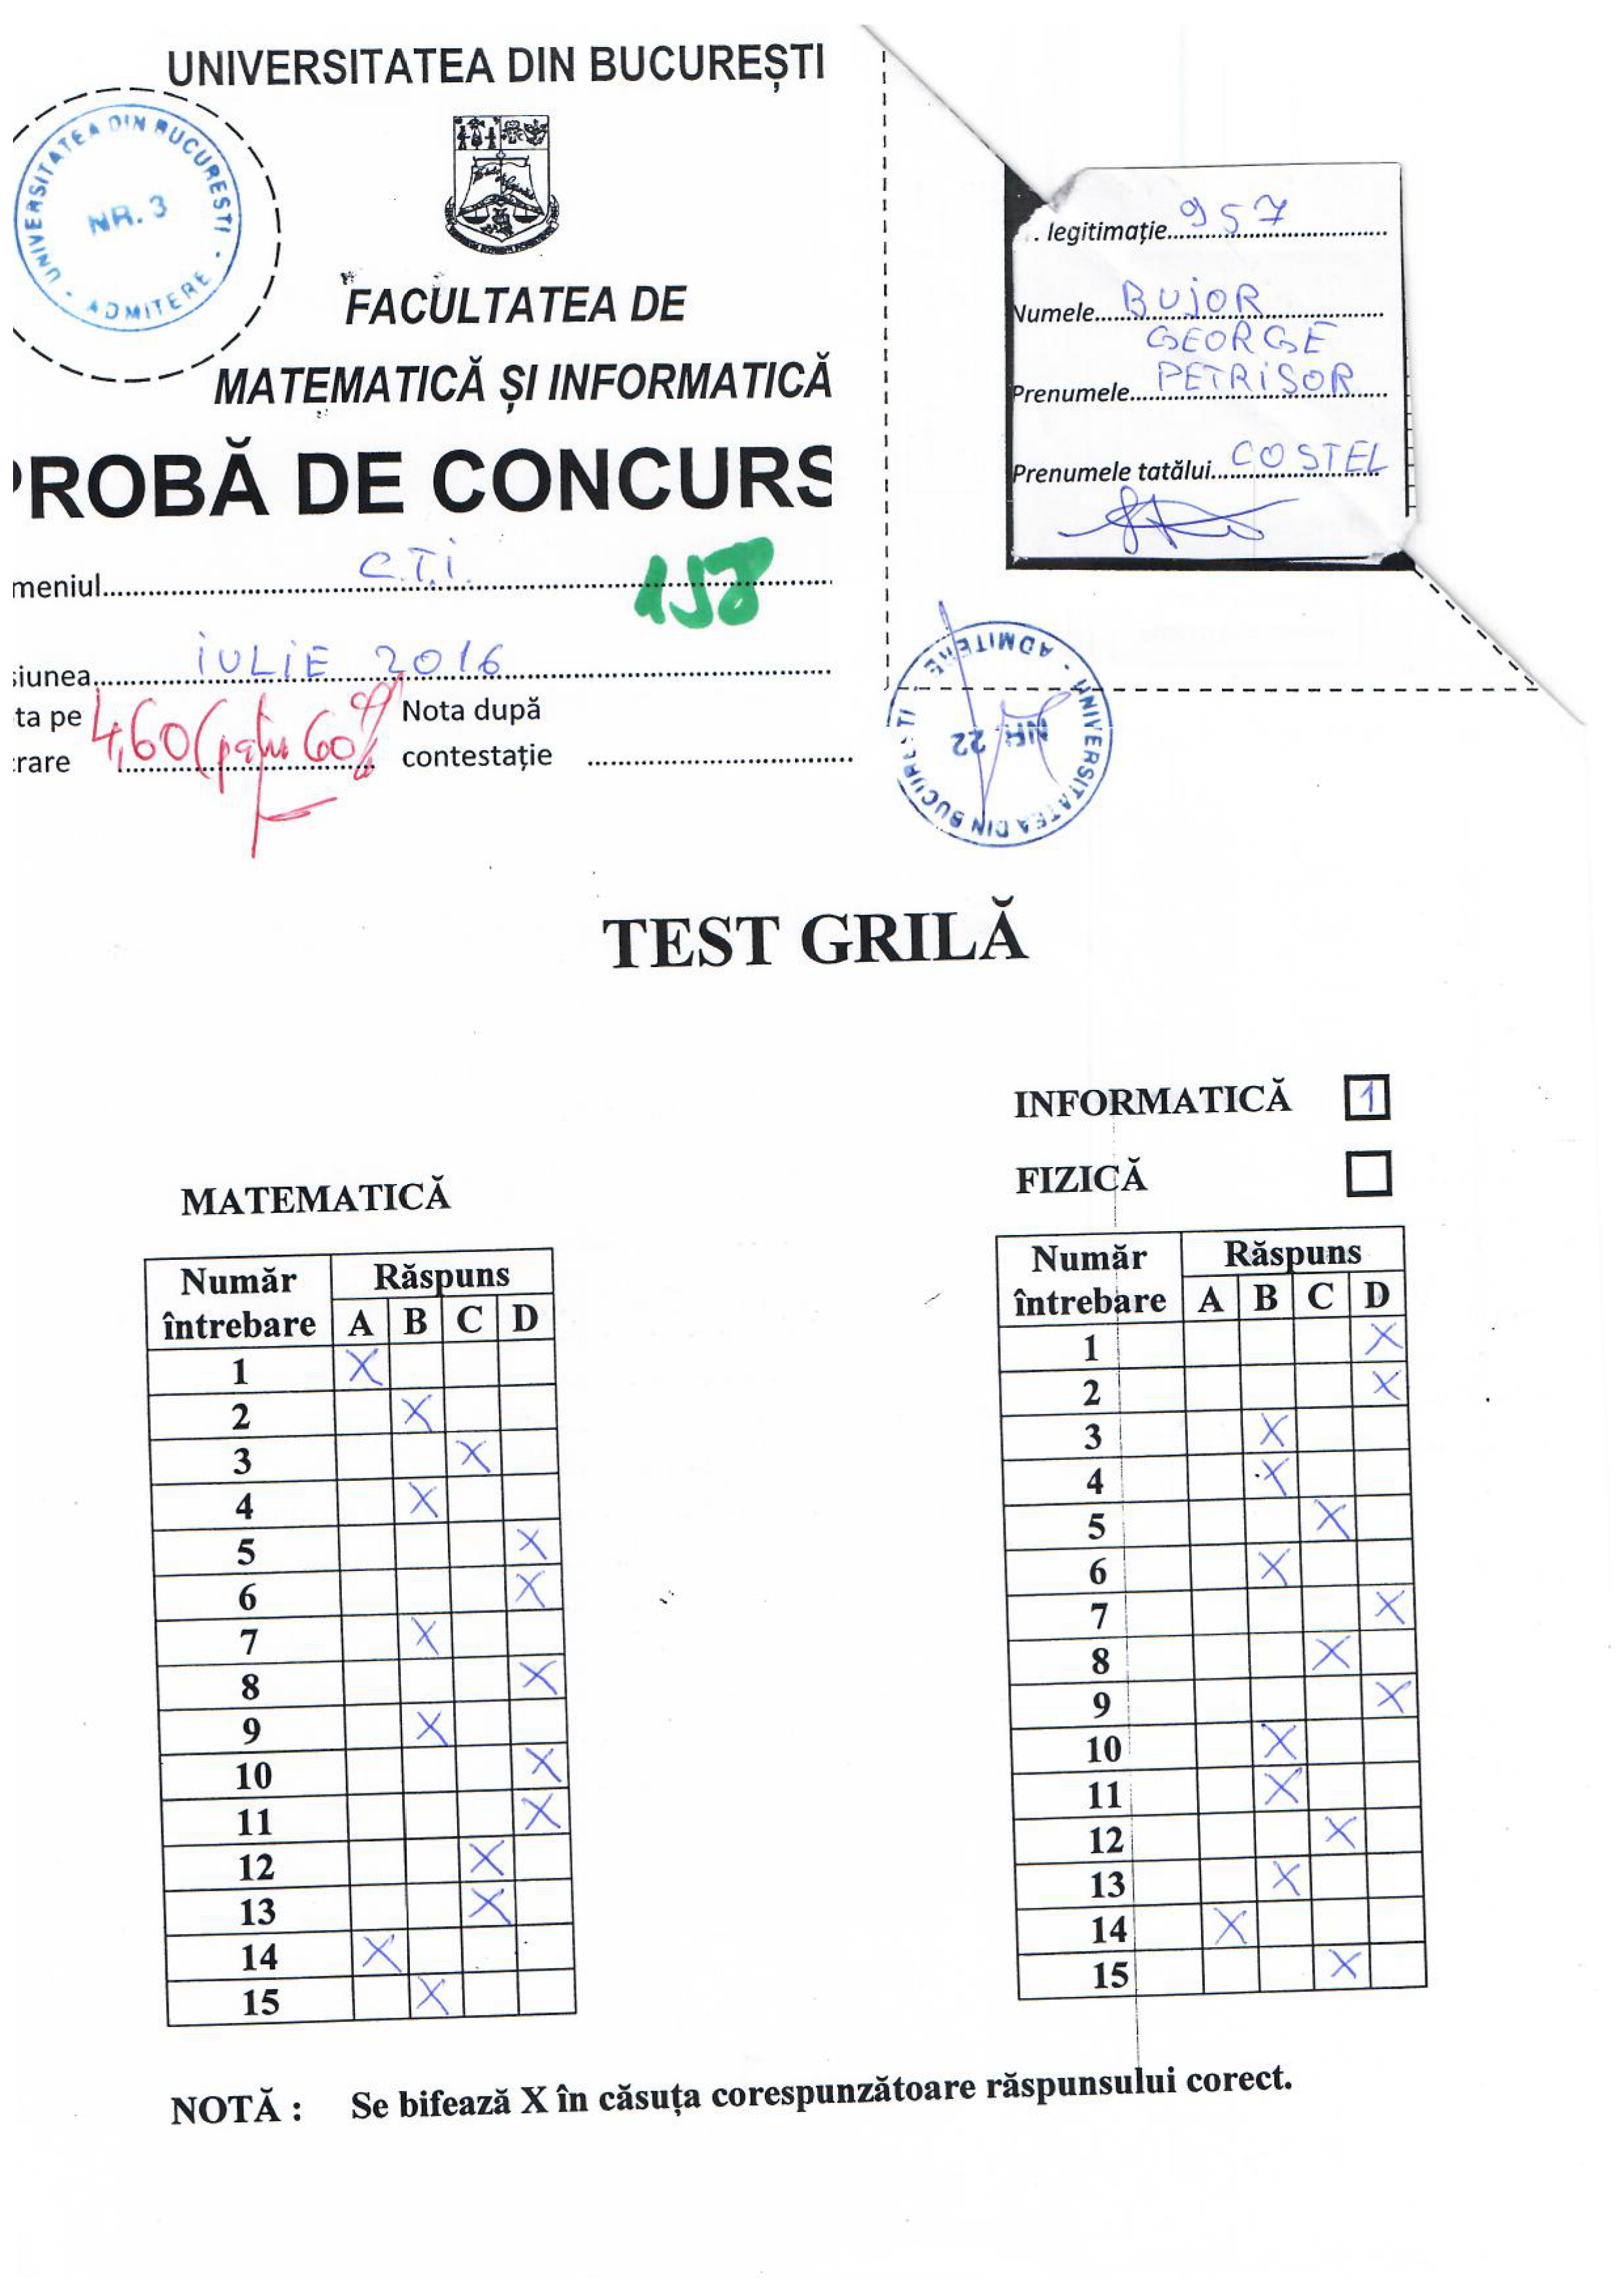 UNIVERSITATEA DIN BUCUREȘTI
UNIVERSITATEA DIN BUCURESTI · ADMITERE ·
NR. 3
FACULTATEA DE
MATEMATICĂ ȘI INFORMATICĂ
PROBĂ DE CONCURS
meniul C.T.i.
158
siunea iULiE 2016
ta pe 4,60 (patru 60%
rare
Nota după
contestație
. legitimație 957
Numele BUJOR
GEORGE
Prenumele PETRISOR
Prenumele tatălui COSTEL
UNIVERSITATEA DIN BUCURESTI · ADMITERE ·
NR. 22
TEST GRILĂ
INFORMATICĂ 1
FIZICĂ
MATEMATICĂ
Număr întrebare Răspuns
A B C D
1 X
2 X
3 X
4 X
5 X
6 X
7 X
8 X
9 X
10 X
11 X
12 X
13 X
14 X
15 X
Număr întrebare Răspuns
A B C D
1 X
2 X
3 X
4 X
5 X
6 X
7 X
8 X
9 X
10 X
11 X
12 X
13 X
14 X
15 X
NOTĂ : Se bifează X în căsuța corespunzătoare răspunsului corect.